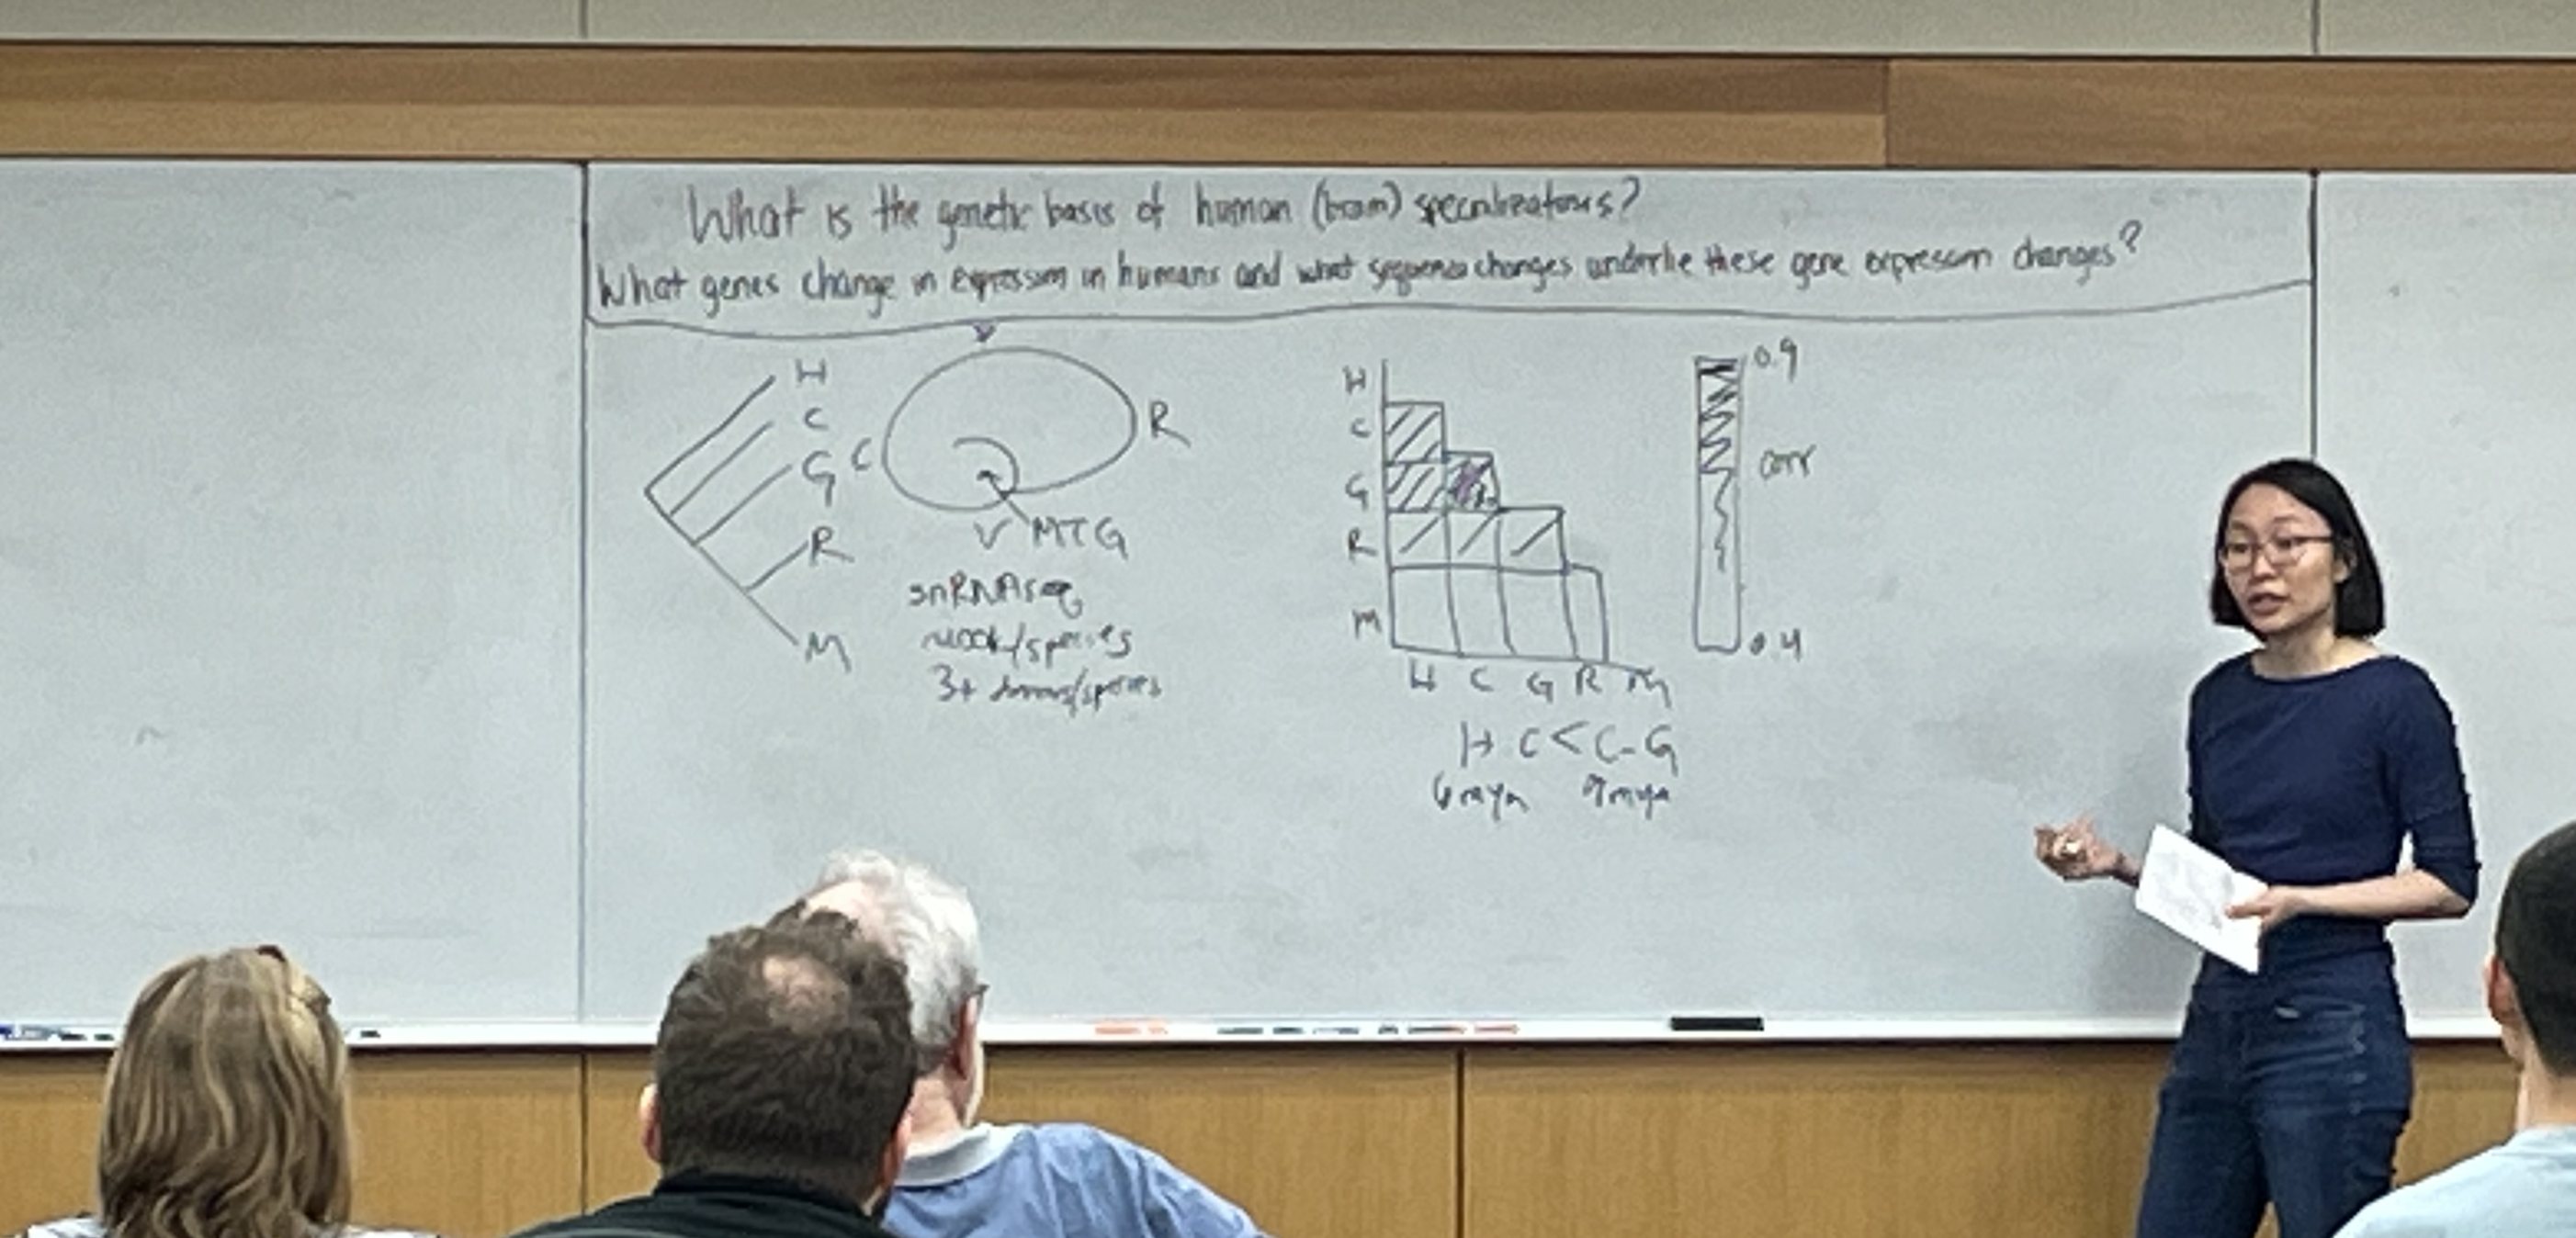 What is the genetic basis of human (brain) specializations?
What genes change in expression in humans and what sequence changes underlie these gene expression changes?
H
C
G
R
M
C
R
V MTG
snRNAseq
/species
3+ donors/species
H
C
G
R
M
H C G R M
0.9
corr
0.4
H-C < C-G
6mya 7mya